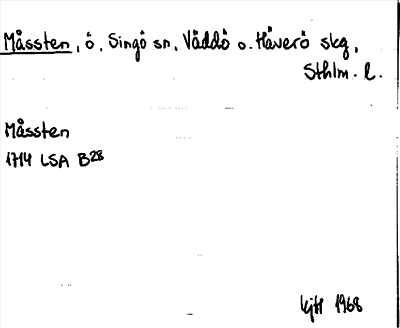 Måssten, ö, Singö sn, Väddö o. Häverö skg,
Sthlm. l.
Måssten
1714 LSA B28
1968